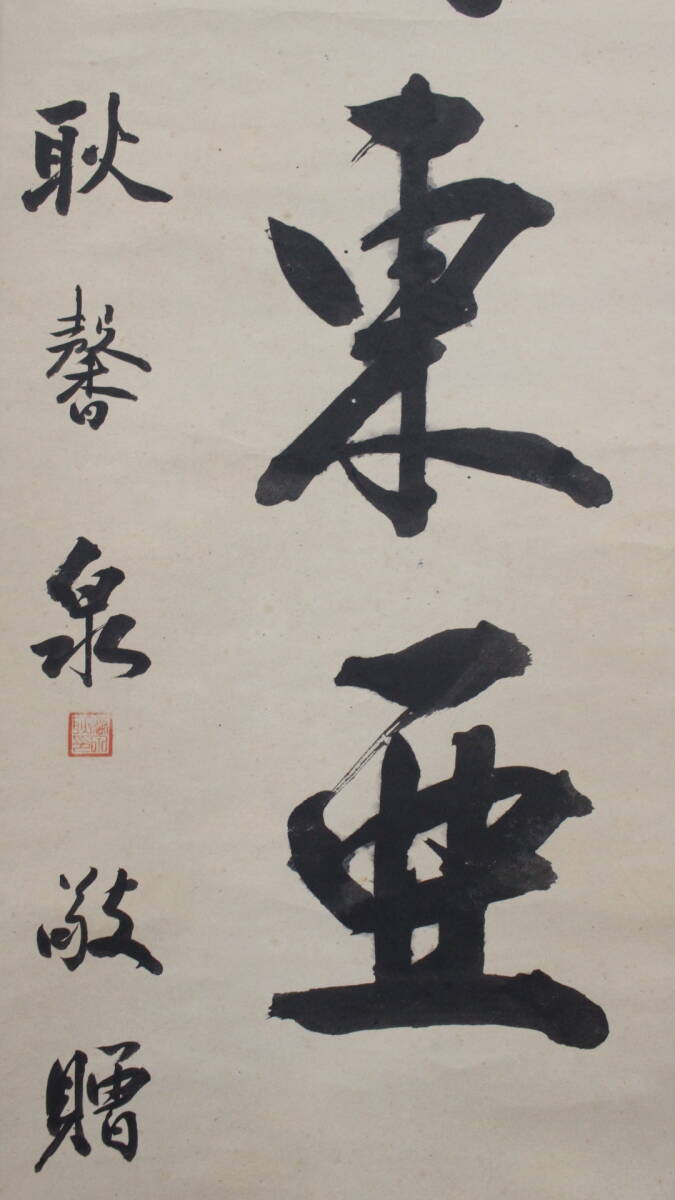 東亜
耿馨泉敬贈